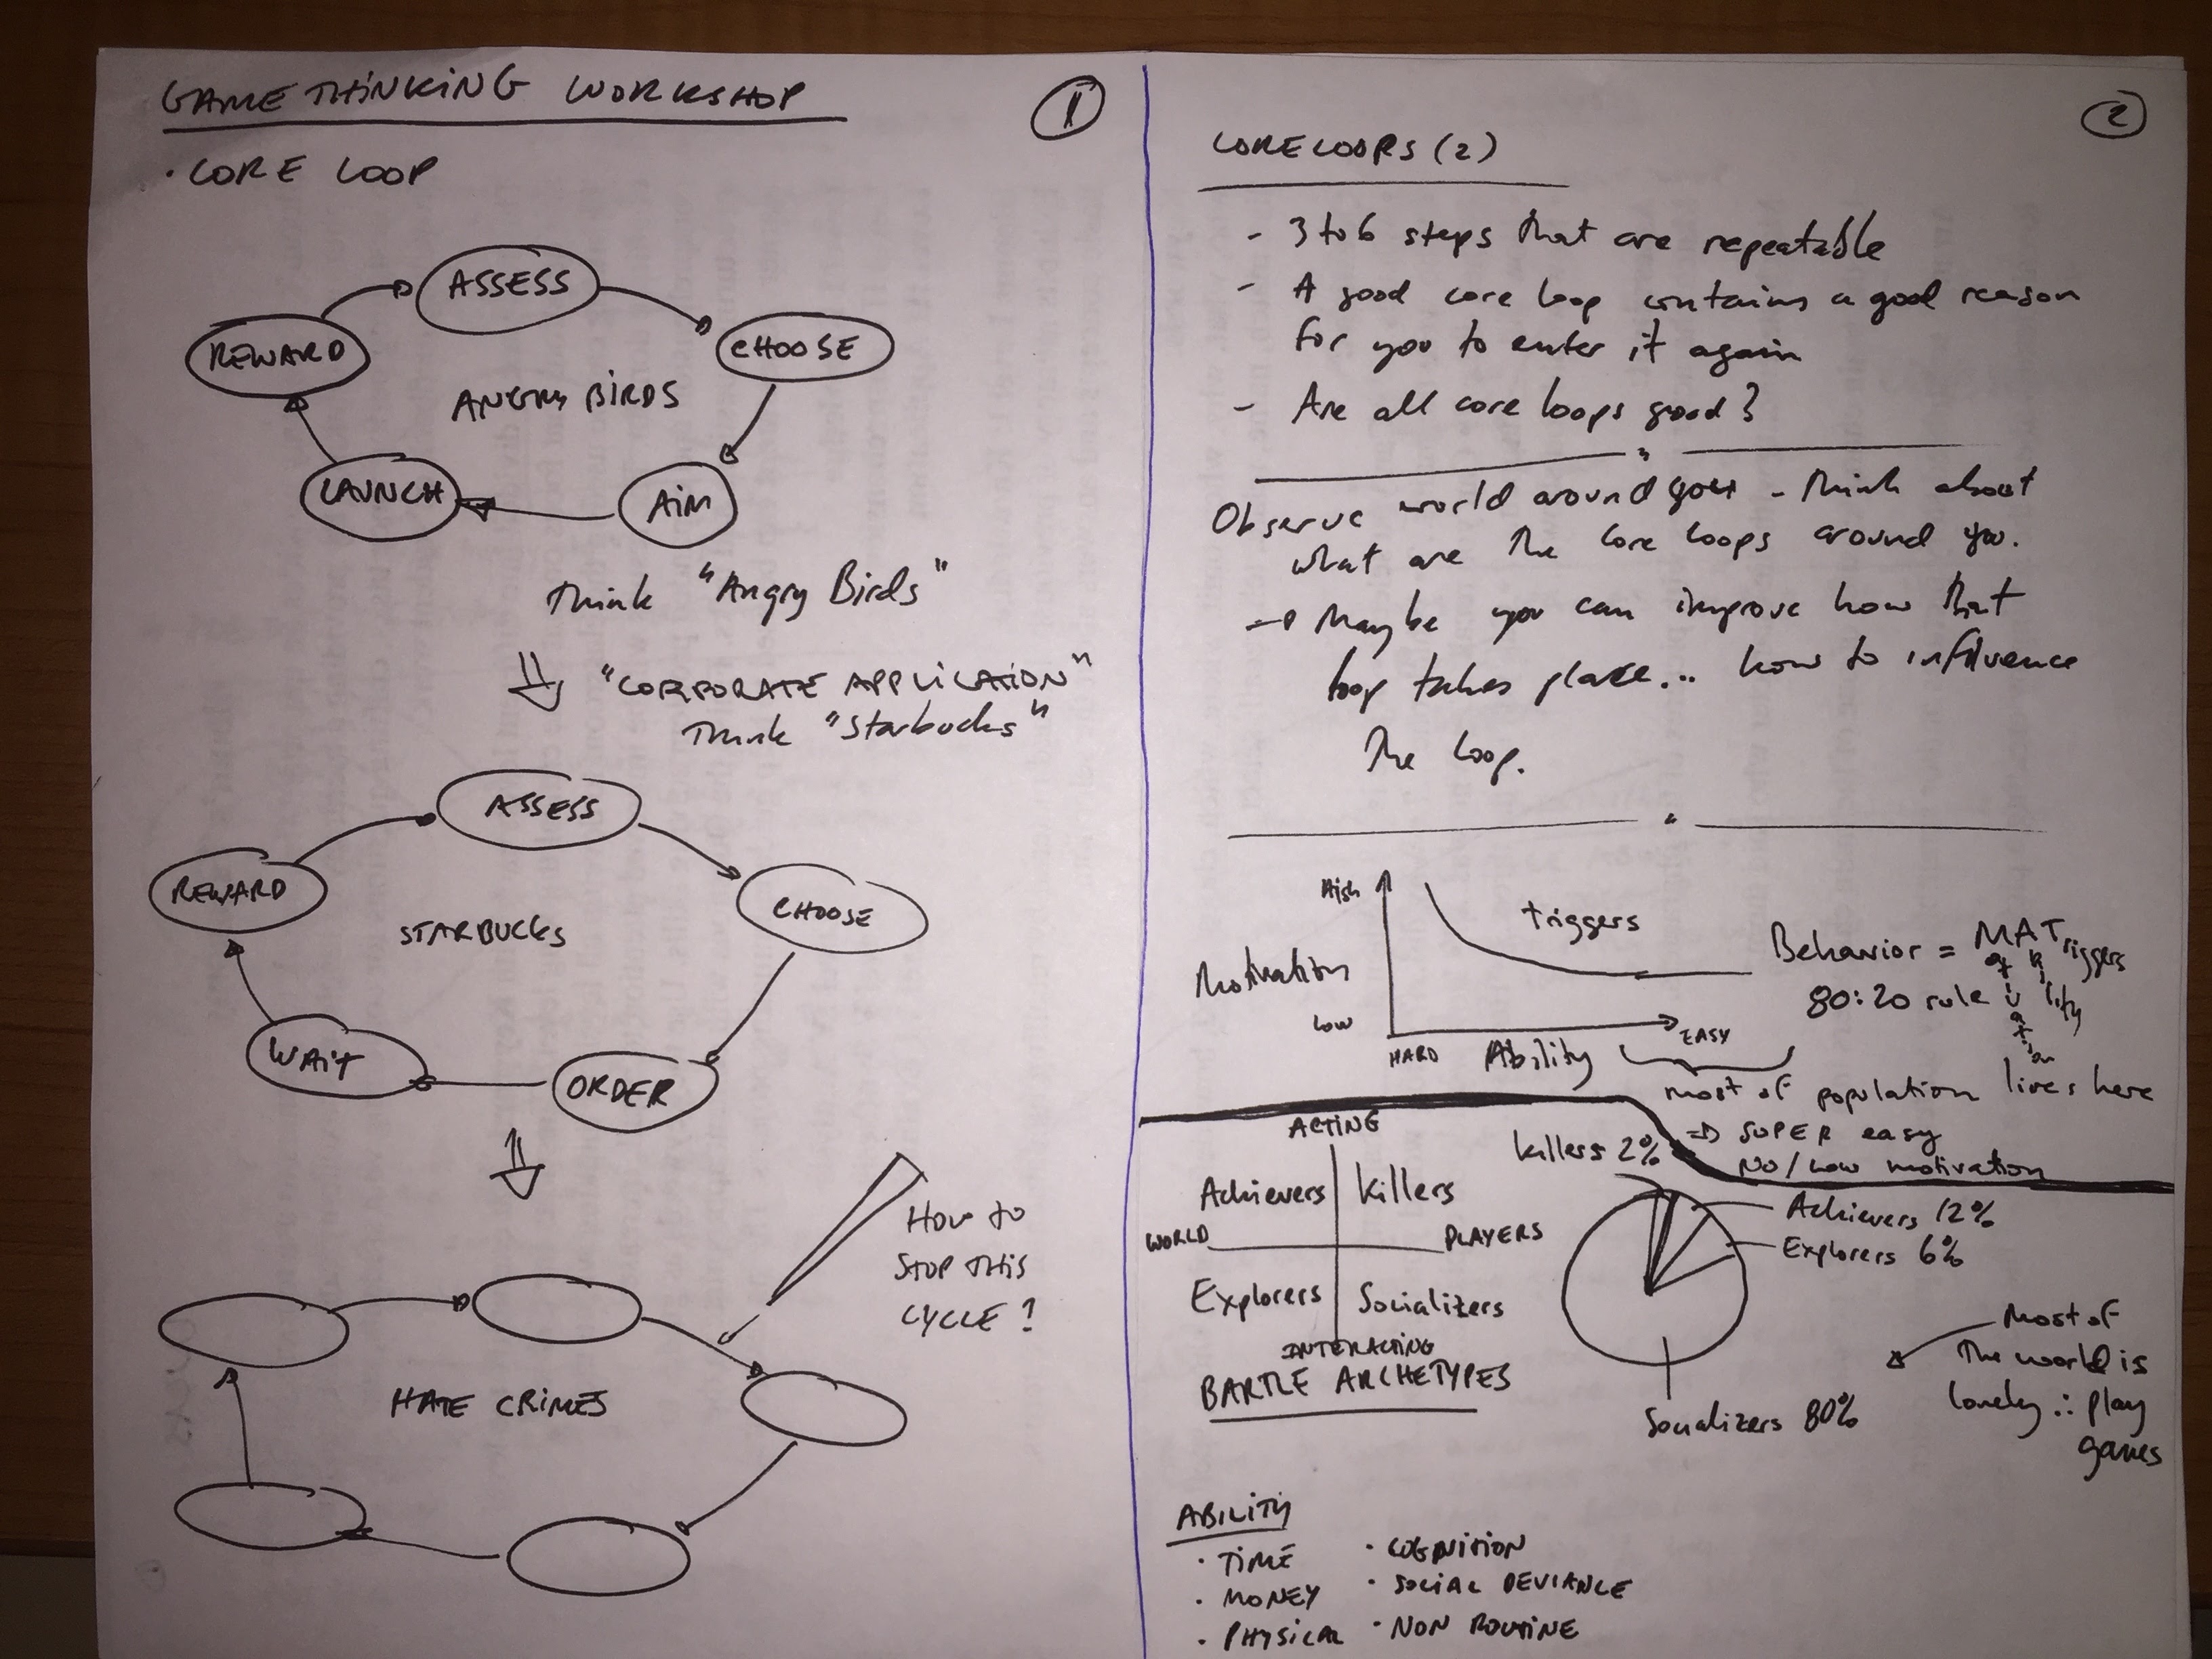 GAMETHINKING WORKSHOP
1
· CORE LOOP
ASSESS
CHOOSE
AIM
LAUNCH
REWARD
ANGRY BIRDS
Think "Angry Birds"
"CORPORATE APPLICATION"
Think "Starbucks"
ASSESS
CHOOSE
ORDER
WAIT
REWARD
STARBUCKS
HOW TO
STOP THIS
CYCLE?
HATE CRIMES
2
CORE LOOPS (2)
- 3 to 6 steps that are repeatable
- A good core loop contains a good reason
for you to enter it again
- Are all core loops good?
Observe world around you - think about
what are the core loops around you.
→ Maybe you can improve how that
loop takes place... how to influence
the loop.
High
Motivation
Low
HARD
Ability
EASY
triggers
Behavior = MATriggers
otivation
bility
80:20 rule
most of population lives here
⇒ SUPER easy
NO/LOW motivation
ACTING
Achievers
Killers
WORLD
PLAYERS
Explorers
Socializers
INTERACTING
BARTLE ARCHETYPES
Killers 2%
Achievers 12%
Explorers 6%
Socializers 80%
Most of
the world is
lonely ∴ play
games
ABILITY
· TIME
· MONEY
· PHYSICAL
· COGNITION
· SOCIAL DEVIANCE
· NON ROUTINE